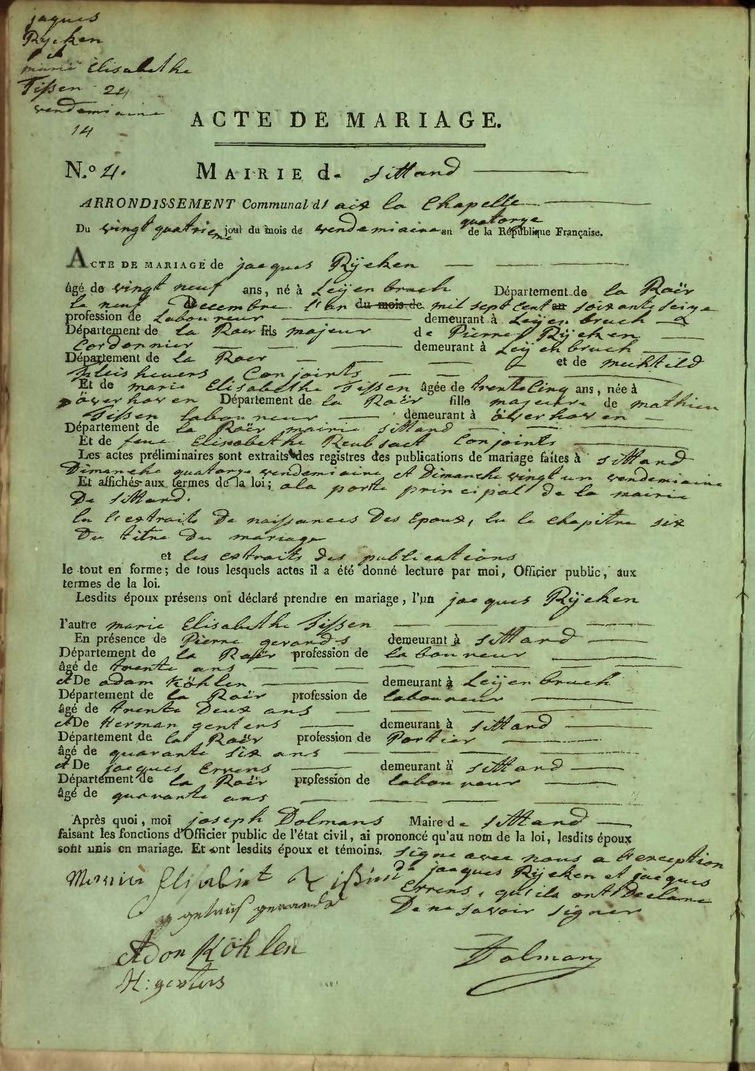 jaques
Rÿcken
et
marie Elisabethe
Tissen 24
vendemiaire
14
ACTE DE MARIAGE.
N.º 4. MAIRIE de sittard
ARRONDISSEMENT Communal d'aix la Chapelle
Du vingt quatrieme jour du mois de vendemiaire an quatorze de la République Française.
ACTE DE MARIAGE de jacques Rÿcken
âgé de vingt neuf ans, né à Leÿenbruch Département de la Roër
le neuf Decembre l'an du mois de mil sept cent soixante seize
profession de Laboureur demeurant à Leÿenbruch
Département de la Roer fils majeur de Pierre Rÿcken
Cordonnier demeurant à Leÿenbruch
Département de la Roer et de mechtild
Conjoints
Et de marie Elisabethe Tissen âgée de trente Cinq ans, née à
överhoven Département de la Roër fille majeure de mathieu
Tissen laboureur demeurant à överhoven
Département de la Roër mairie sittard
Et de feue Elisabethe Conjoints
Les actes préliminaires sont extraits des registres des publications de mariage faites à sittard
Dimanche quatorze vendemiaire et Dimanche vingt un vendemiaire
Et affichés aux termes de la loi; a la porte principal de la mairie
De sittard.
lu l'extraits de naissances des Epoux, lu le chapitre six
Du titre du mariage
et les extraits des publications
le tout en forme; de tous lesquels actes il a été donné lecture par moi, Officier public, aux
termes de la loi.
Lesdits époux présens ont déclaré prendre en mariage, l'un jacques Rÿcken
l'autre marie Elisabethe Tissen
En présence de Pierre gerards demeurant à sittard
Département de la Roër profession de laboureur
âgé de trente ans
et De adam Köhlen demeurant à Leÿenbruch
Département de la Roër profession de laboureur
âgé de trente Deux ans
et De Herman gentens demeurant à sittard
Département de la Roër profession de Portier
âgé de quarante six ans
et De jacques Errens demeurant à sittard
Département de la Roër profession de laboureur
âgé de quarante ans
Après quoi, moi joseph Dolmans Maire de sittard
faisant les fonctions d'Officier public de l'état civil, ai prononcé qu'au nom de la loi, lesdits époux
sont unis en mariage. Et ont lesdits époux et témoins. signe avec nous a l'exception
de jacques Rÿcken et jacques
Errens, qu'ils ont Declare
De ne savoir signer
Adon Köhlen
Dolmans